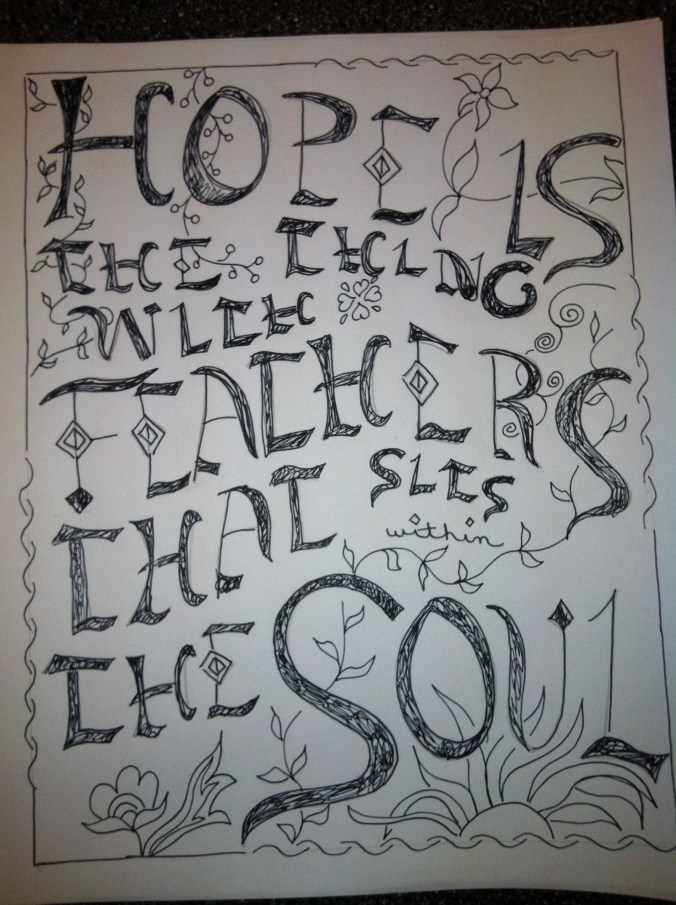 HOPE IS
THE THING
WITH
FEATHERS
THAT SITS
within
THE SOUL